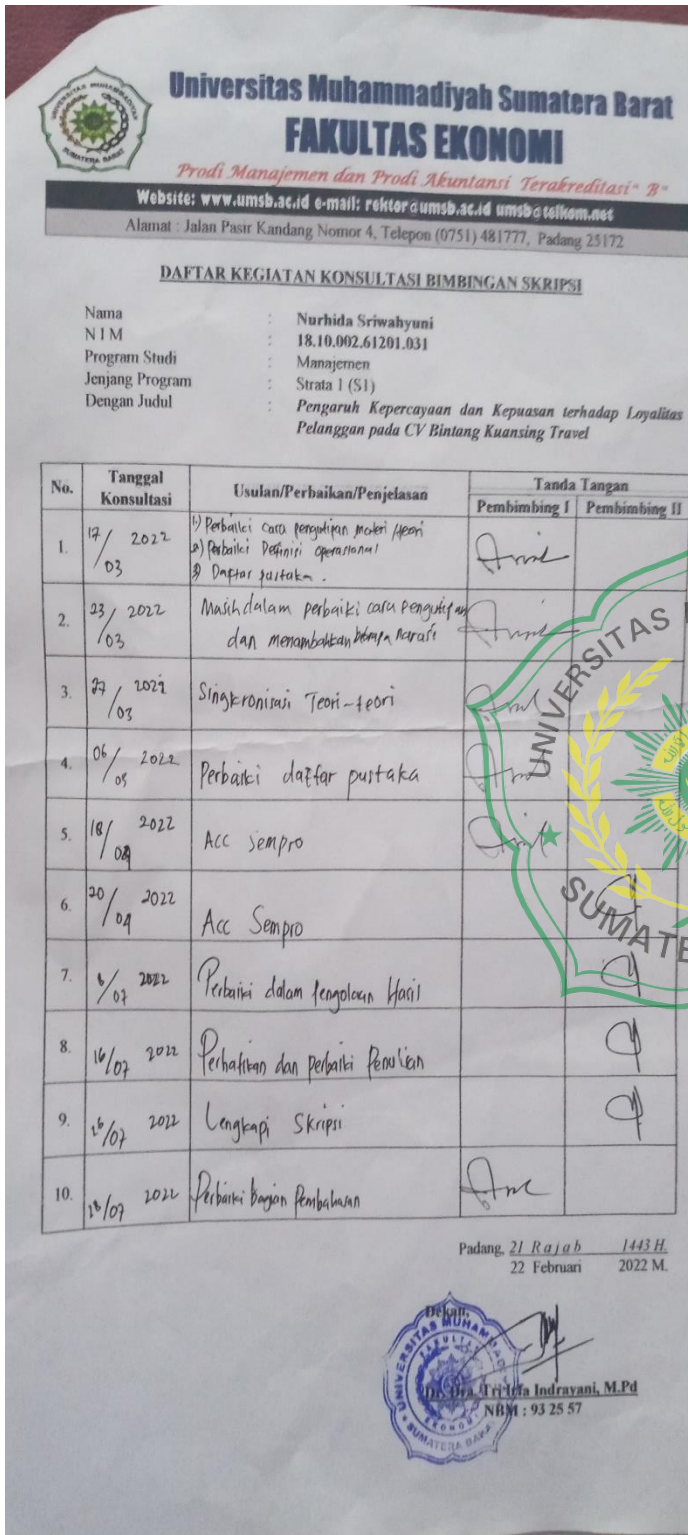 Universitas Muhammadiyah Sumatera Barat
FAKULTAS EKONOMI
Prodi Manajemen dan Prodi Akuntansi Terakreditasi "B"
Website: www.umsb.ac.id e-mail: rektor@umsb.ac.id umsb@telkom.net
Alamat : Jalan Pasir Kandang Nomor 4, Telepon (0751) 481777, Padang 25172
DAFTAR KEGIATAN KONSULTASI BIMBINGAN SKRIPSI
Nama : Nurhida Sriwahyuni
N I M : 18.10.002.61201.031
Program Studi : Manajemen
Jenjang Program : Strata 1 (S1)
Dengan Judul : Pengaruh Kepercayaan dan Kepuasan terhadap Loyalitas
Pelanggan pada CV Bintang Kuansing Travel
No. Tanggal Konsultasi Usulan/Perbaikan/Penjelasan Tanda Tangan
Pembimbing I Pembimbing II
1. 17/03 2022 1) Perbaiki cara pengutipan materi/teori
2) Perbaiki Definisi operasional
3) Daftar pustaka.
2. 23/03 2022 Masih dalam perbaiki cara pengutipan
dan menambahkan beberapa narasi
3. 27/03 Singkronisasi Teori-teori
4. 06/ 2022 Perbaiki daftar pustaka
5. 18/ 2022 Acc Sempro
6. 20/04 2022 Acc Sempro
7. /07 2022 Perbaiki dalam Pengolaan Hasil
8. 16/07 2022 Perhatikan dan perbaiki Penulisan
9. /07 2022 Lengkapi Skripsi
10. /07 2022 Perbaiki bagian Pembahasan
Padang, 21 Rajab 1443 H.
22 Februari 2022 M.
Dekan,
Dr. Dra. Tri Irfa Indrayani, M.Pd
NBM : 93 25 57
UNIVERSITAS
SUMATE